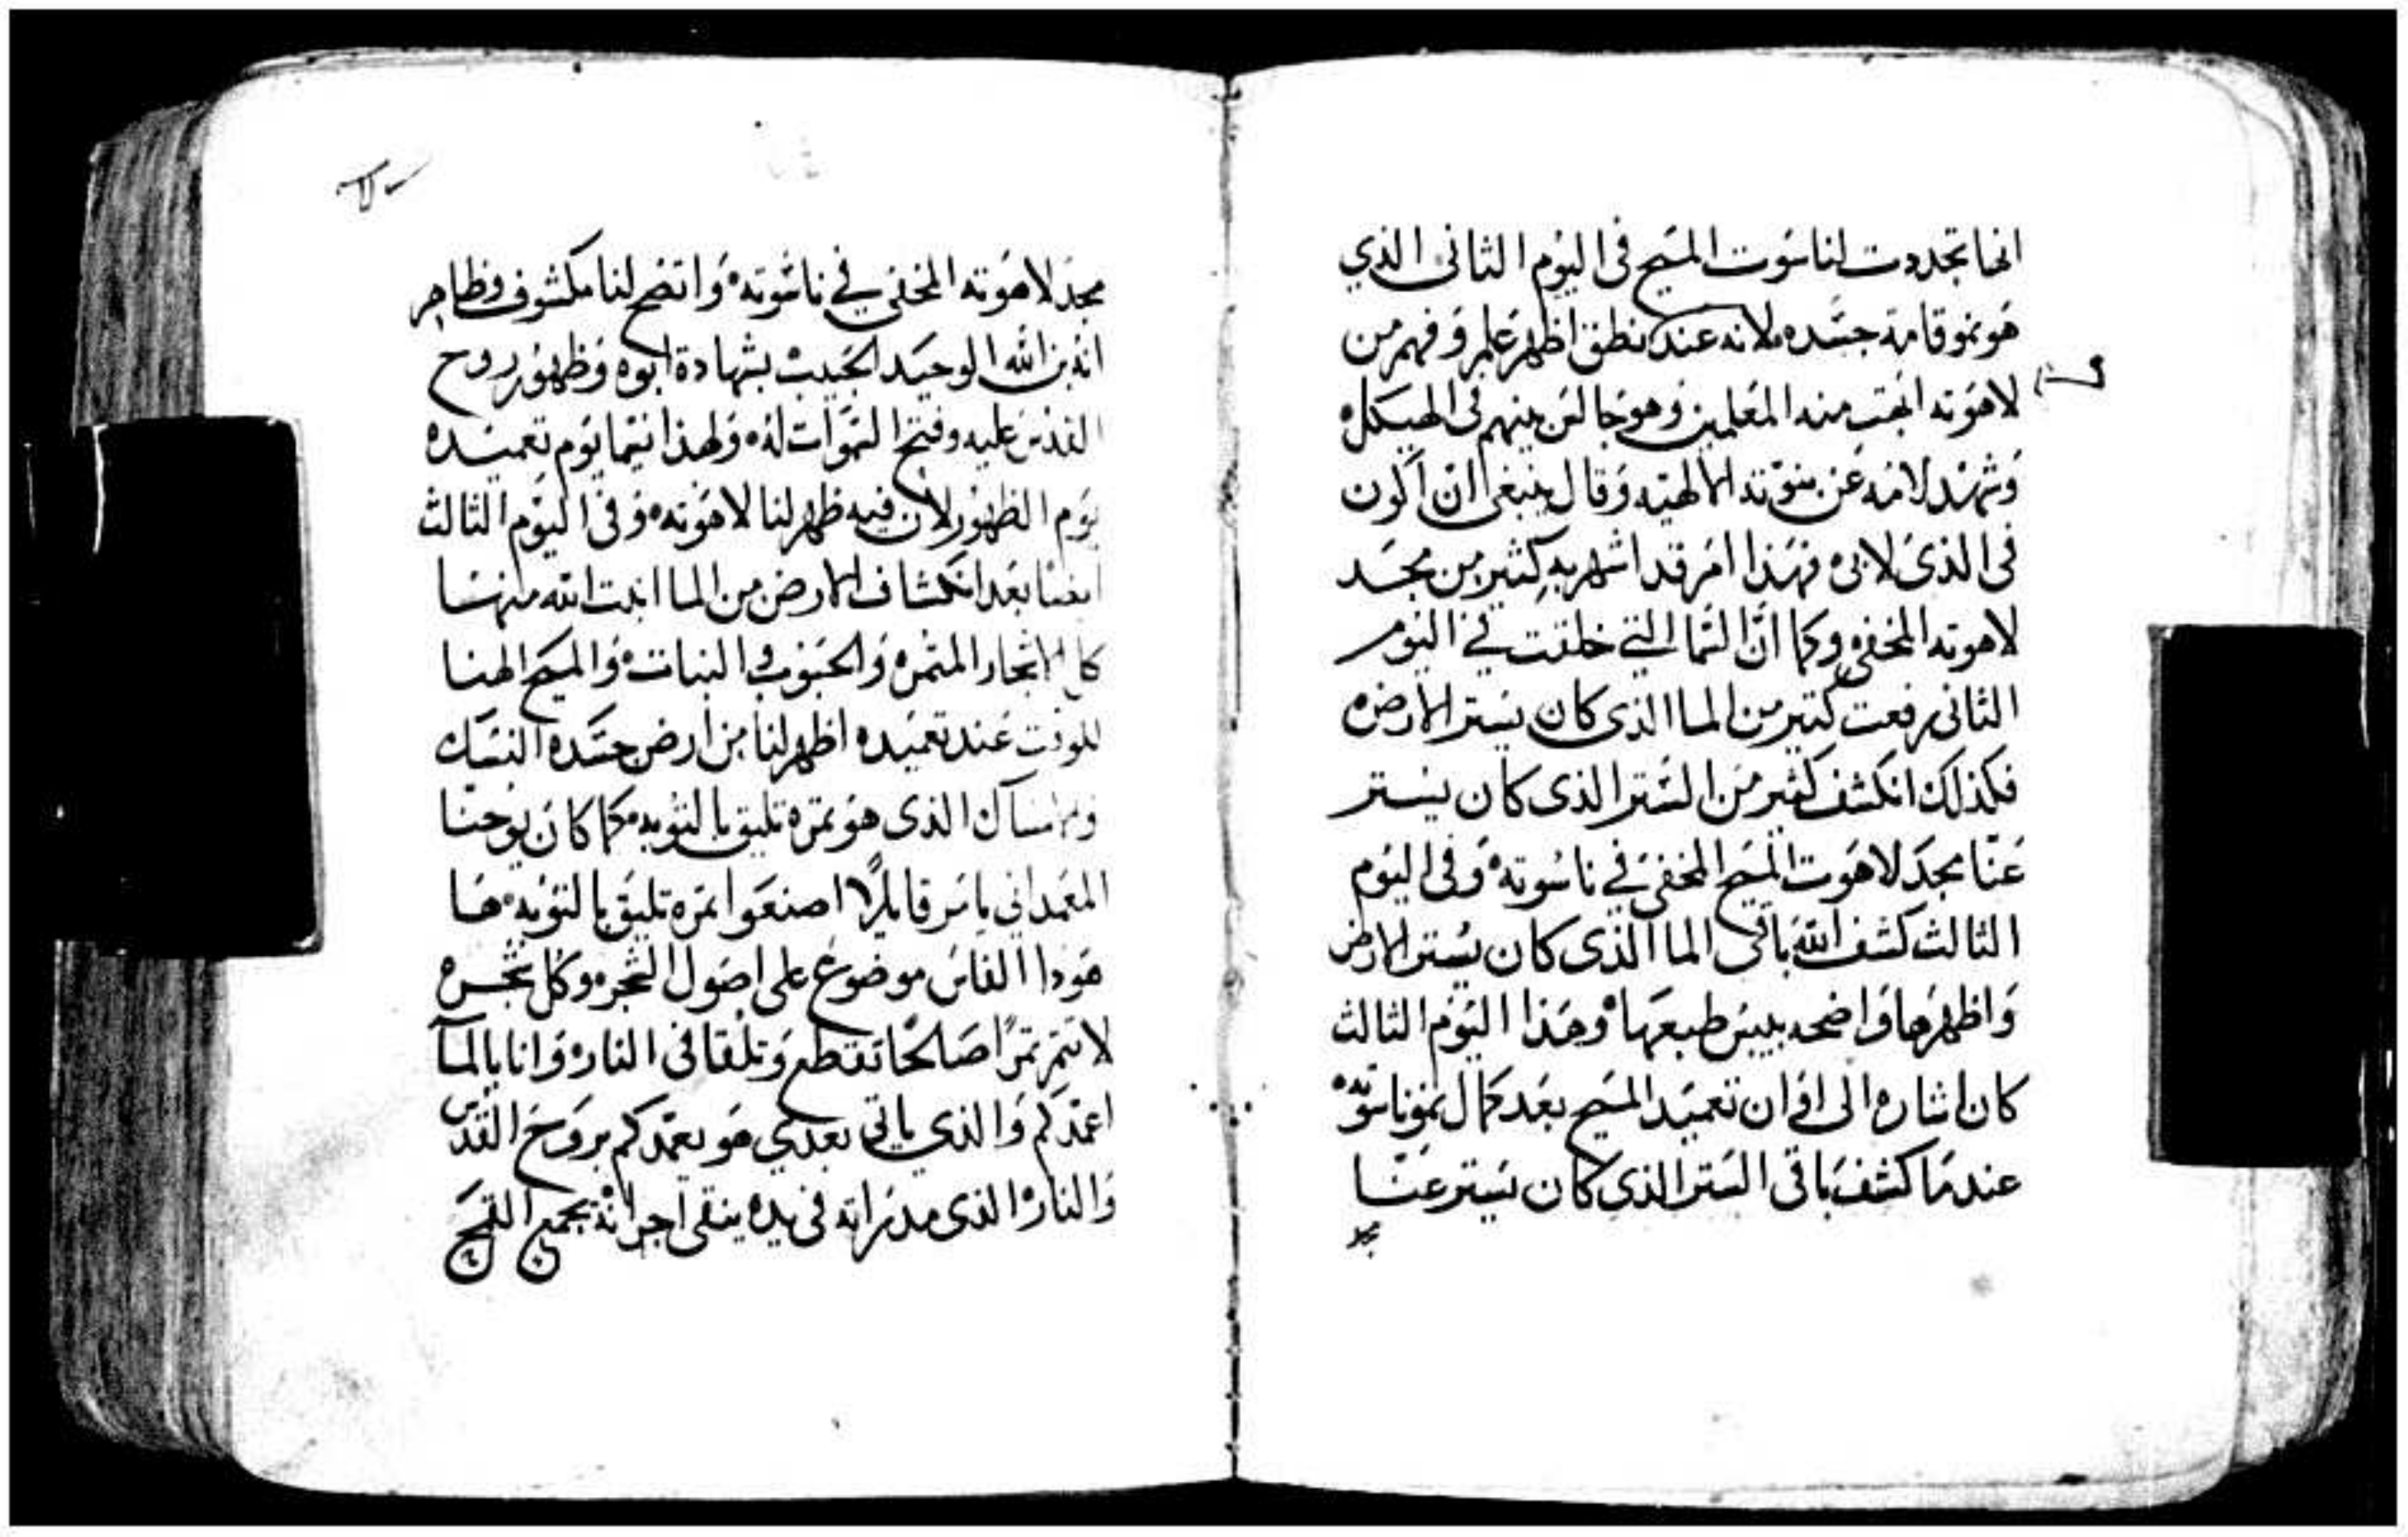 انها تجددت لناسوت المسيح فى اليوم الثانى الذي
هو نمو قامة جسده لانه عند نطق اظهر علم وفهم من
لاهوته ابهت منه المعلمين وهو جالس بينهم فى الهيكل
وشهد لامه عن بنوته الالهيه وقال ينبغى ان اكون
فى الذى لابى فهذا امر قد اشهر به كثير من مجد
لاهوته المخفى وكما ان السما التي خلقت في اليوم
الثانى رفعت كتير من الما الذى كان يستر الارض
فكذلك انكشف كثير من الستر الذى كان يستر
عنا مجد لاهوت المسيح المخفى في ناسوته وفى اليوم
الثالث كشف الله باقى الما الذى كان يستر الارض
واظهرها واضحه بيبس طبعها وهذا اليوم الثالث
كان اشاره الى اوان تعميد المسيح بعد كمال نمو ناسوته
عندما كشف باقى الستر الذى كان يستر عنا
مجد
مجد لاهوته المخفي في ناسوته واتضح لنا مكشوف وظاهر
انه بن الله الوحيد الحبيب بشهادة ابوه وظهور روح
القدس عليه وفتح السموات له ولهذا نيما يوم تعميده
يوم الظهور لان فيه ظهر لنا لاهوته وفى اليوم الثالث
ايضا بعد انكشاف الارض من الما انبت الله منها
كل الاشجار المثمره والحبوب والنبات والمسيح الهنا
للوقت عند تعميده اظهر لنا من ارض جسده النسك
الذى هو تمره تليق بالتوبه كما كان يوحنا
المعمداني يامر قايلاً اصنعوا تمره تليق بالتوبه ها
هودا الفاس موضوع على اصول الشجره وكل شجره
لا تتمر تمرًا صالحًا تقطع وتلقا فى النار وانا بالما
اعمدكم والذي ياتى بعدي هو يعمدكم بروح القدس
والنار الذى مدراته فى يده ينقى اجرانه يجمع القمح